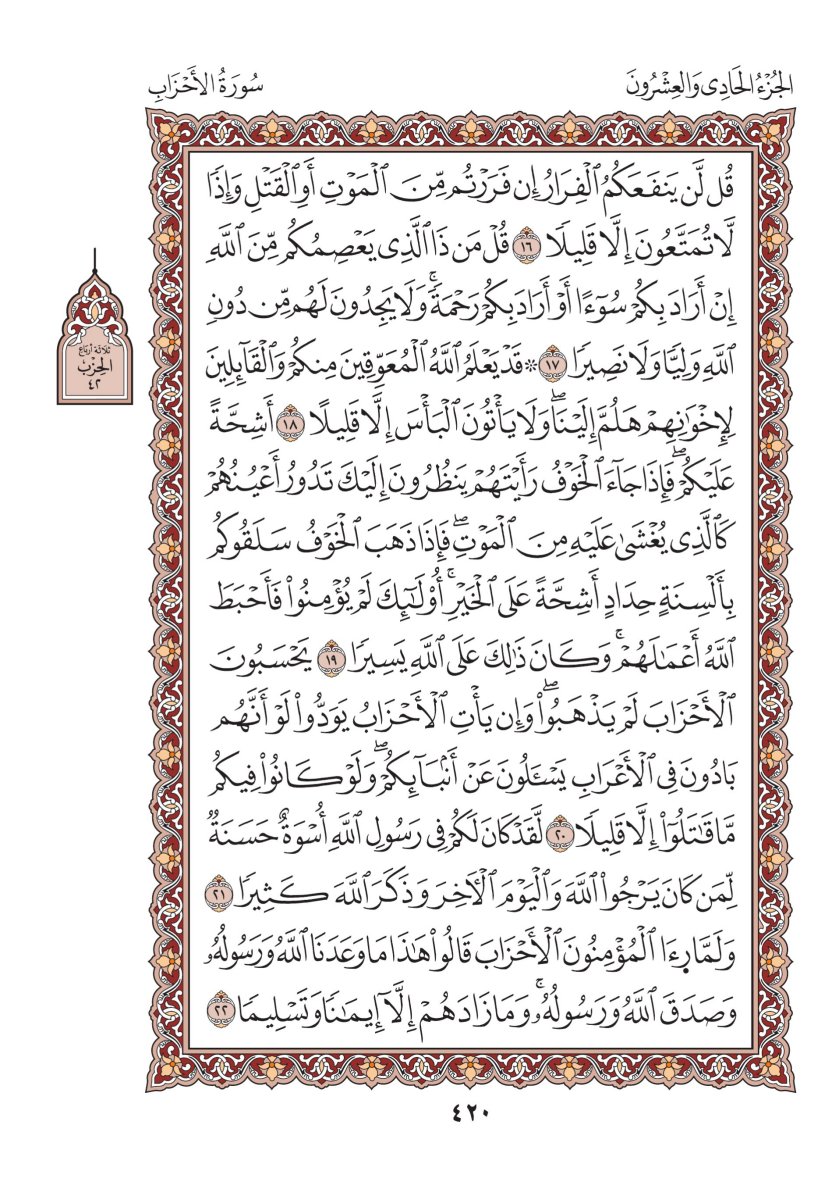 الجُزْءُ الحَادِي وَالعِشْرُونَ
سُورَةُ الأَحْزَابِ
قُل لَّن يَنفَعَكُمُ ٱلْفِرَارُ إِن فَرَرْتُم مِّنَ ٱلْمَوْتِ أَوِ ٱلْقَتْلِ وَإِذًا
لَّا تُمَتَّعُونَ إِلَّا قَلِيلًا ١٦ قُلْ مَن ذَا ٱلَّذِي يَعْصِمُكُم مِّنَ ٱللَّهِ
إِنْ أَرَادَ بِكُمْ سُوٓءًا أَوْ أَرَادَ بِكُمْ رَحْمَةًۚ وَلَا يَجِدُونَ لَهُم مِّن دُونِ
ٱللَّهِ وَلِيًّا وَلَا نَصِيرًا ١٧ ۞ قَدْ يَعْلَمُ ٱللَّهُ ٱلْمُعَوِّقِينَ مِنكُمْ وَٱلْقَآئِلِينَ
لِإِخْوَٰنِهِمْ هَلُمَّ إِلَيْنَاۖ وَلَا يَأْتُونَ ٱلْبَأْسَ إِلَّا قَلِيلًا ١٨ أَشِحَّةً
عَلَيْكُمْۖ فَإِذَا جَآءَ ٱلْخَوْفُ رَأَيْتَهُمْ يَنظُرُونَ إِلَيْكَ تَدُورُ أَعْيُنُهُمْ
كَٱلَّذِي يُغْشَىٰ عَلَيْهِ مِنَ ٱلْمَوْتِۖ فَإِذَا ذَهَبَ ٱلْخَوْفُ سَلَقُوكُم
بِأَلْسِنَةٍ حِدَادٍ أَشِحَّةً عَلَى ٱلْخَيْرِۚ أُوْلَٰٓئِكَ لَمْ يُؤْمِنُواْ فَأَحْبَطَ
ٱللَّهُ أَعْمَٰلَهُمْۚ وَكَانَ ذَٰلِكَ عَلَى ٱللَّهِ يَسِيرًا ١٩ يَحْسَبُونَ
ٱلْأَحْزَابَ لَمْ يَذْهَبُواْۖ وَإِن يَأْتِ ٱلْأَحْزَابُ يَوَدُّواْ لَوْ أَنَّهُم
بَادُونَ فِي ٱلْأَعْرَابِ يَسْـَٔلُونَ عَنْ أَنۢبَآئِكُمْۖ وَلَوْ كَانُواْ فِيكُم
مَّا قَٰتَلُوٓاْ إِلَّا قَلِيلًا ٢٠ لَّقَدْ كَانَ لَكُمْ فِي رَسُولِ ٱللَّهِ أُسْوَةٌ حَسَنَةٌ
لِّمَن كَانَ يَرْجُواْ ٱللَّهَ وَٱلْيَوْمَ ٱلْأٓخِرَ وَذَكَرَ ٱللَّهَ كَثِيرًا ٢١
وَلَمَّا رِءَا ٱلْمُؤْمِنُونَ ٱلْأَحْزَابَ قَالُواْ هَٰذَا مَا وَعَدَنَا ٱللَّهُ وَرَسُولُهُۥ
وَصَدَقَ ٱللَّهُ وَرَسُولُهُۥۚ وَمَا زَادَهُمْ إِلَّآ إِيمَٰنًا وَتَسْلِيمًا ٢٢
ثَلَاثَة أَربَاع
الحِزْبُ
٤٢
٤٢٠